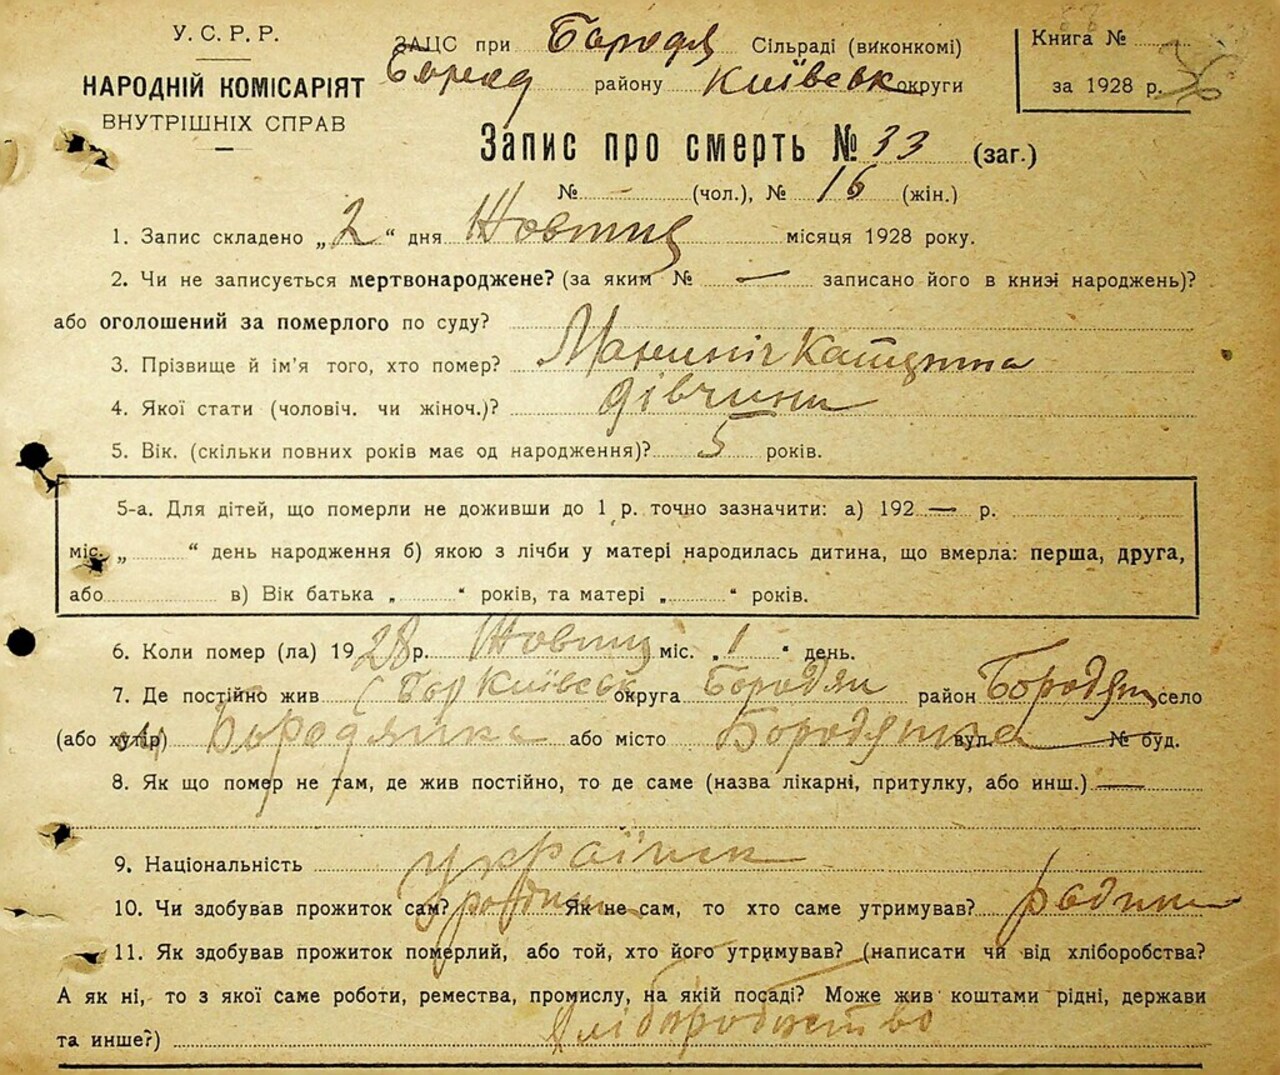 У. С. Р. Р.
НАРОДНІЙ КОМІСАРІЯТ
ВНУТРІШНІХ СПРАВ
ЗАЦС при Бородя Сільраді (виконкомі)
району Київськ округи
Книга №
за 1928 р.
Запис про смерть № 33 (заг.)
№ - (чол.), № 16 (жін.)
1. Запис складено „2“ дня Жовтня місяця 1928 року.
2. Чи не записується мертвонароджене? (за яким № — записано його в книзі народжень)?
або оголошений за померлого по суду?
3. Прізвище й ім'я того, хто помер?
4. Якої стати (чоловіч. чи жіноч.)? дівчина
5. Вік. (скільки повних років має од народження)? 5 років.
5-а. Для дітей, що померли не доживши до 1 р. точно зазначити: а) 192 — р.
міс. „ “ день народження б) якою з лічби у матері народилась дитина, що вмерла: перша, друга,
або в) Вік батька „ “ років, та матері „ “ років.
6. Коли помер (ла) 1928 р. Жовтня міс. „1“ день.
7. Де постійно жив Київськ округа Бородян район Бородян село
(або хутір) Бородянка або місто Бородянка вул. — № буд.
8. Як що помер не там, де жив постійно, то де саме (назва лікарні, притулку, або инш.) —
9. Національність українск
10. Чи здобував прожиток сам? Як не сам, то хто саме утримував? родители
11. Як здобував прожиток померлий, або той, хто його утримував? (написати чи від хліборобства?
А як ні, то з якої саме роботи, ремества, промислу, на якій посаді? Може жив коштами рідні, держави
та инше?) Хліборобство